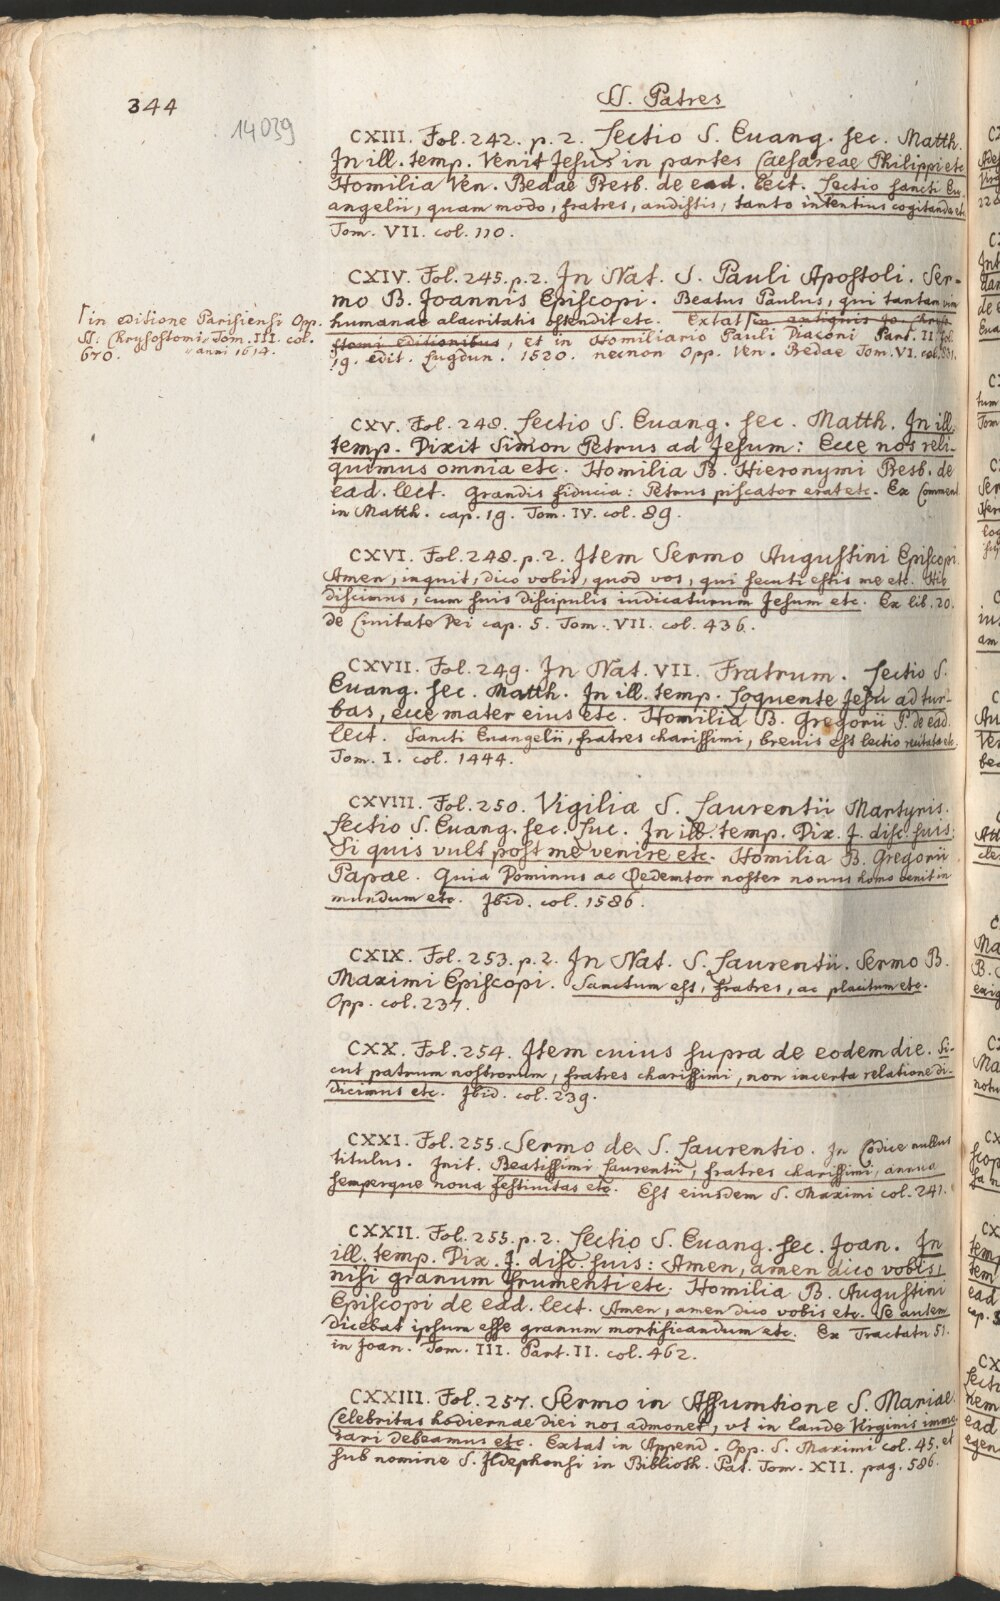 344
SS. Patres
14039
CXIII. Fol. 242. p. 2. Lectio S. Euang. sec. Matth.
In ill. temp. Venit Jesus in partes Caesareae Philippi etc
Homilia Ven. Bedae Presb. de ead. lect. Lectio sancti Eu-
angelii, quam modo, fratres, audistis, tanto intentius cogitanda etc
Tom. VII. col. 110.
CXIV. Fol. 245. p. 2. In Nat. S. Pauli Apostoli. Ser-
mo B. Joannis Episcopi. Beatus Paulus, qui tantam vim
humanae alacritatis ostendit etc. Extat in antiquis Jo. Chryso-
stomi editionibus, et in Homiliario Pauli Diaconi Part. II. fol.
19. edit. Lugdun. 1520. necnon Opp. Ven. Bedae Tom. VI. col. 831.
in editione Parisiensi Opp.
S. Chrysostomi Tom. III. col.
670. anni 1614.
CXV. Fol. 248. Lectio S. Euang. sec. Matth. In ill.
temp. Dixit Simon Petrus ad Jesum: Ecce nos reli-
quimus omnia etc. Homilia B. Hieronymi Presb. de
ead. lect. Grandis fiducia: Petrus piscator erat etc. Ex Comment
in Matth. cap. 19. Tom. IV. col. 89.
CXVI. Fol. 248. p. 2. Item Sermo Augustini Episcopi.
Amen, inquit, dico vobis, quod vos, qui secuti estis me etc. Hic
discimus, cum suis discipulis iudicaturum Jesum etc. Ex lib. 20.
de Ciuitate Dei cap. 5. Tom. VII. col. 436.
CXVII. Fol. 249. In Nat. VII. Fratrum. Lectio S.
Euang. sec. Matth. In ill. temp. Loquente Jesu ad tur-
bas, ecce mater eius etc. Homilia B. Gregorii P. de ead.
lect. Sancti Euangelii, fratres charissimi, breuis est lectio recitata etc.
Tom. I. col. 1444.
CXVIII. Fol. 250. Vigilia S. Laurentii Martyris.
Lectio S. Euang. sec. Luc. In ill. temp. Dix. J. disc. suis:
Si quis vult post me venire etc. Homilia B. Gregorii
Papae. Quia Dominus ac Redemtor noster nouus homo venit in
mundum etc. Ibid. col. 1586.
CXIX. Fol. 253. p. 2. In Nat. S. Laurentii. Sermo B.
Maximi Episcopi. Sanctum est, fratres, ac placitum etc.
Opp. col. 237.
CXX. Fol. 254. Item cuius supra de eodem die. Si-
cut patrum nostrorum, fratres charissimi, non incerta relatione di-
dicimus etc. Ibid. col. 239.
CXXI. Fol. 255. Sermo de S. Laurentio. In Codice nullus
titulus. Init. Beatissimi Laurentii, fratres charissimi, annua
semperque noua festiuitas etc. Est eiusdem S. Maximi col. 241.
CXXII. Fol. 255. p. 2. Lectio S. Euang. sec. Joan. In
ill. temp. Dix. J. disc. suis: Amen, amen dico vobis,
nisi granum frumenti etc. Homilia B. Augustini
Episcopi de ead. lect. Amen, amen dico vobis etc. Se autem
dicebat ipsum esse granum mortificandum etc. Ex Tractatu 51.
in Joan. Tom. III. Part. II. col. 462.
CXXIII. Fol. 257. Sermo in Assumtione S. Mariae.
Celebritas hodiernae diei nos admonet, vt in laude Virginis immo-
rari debeamus etc. Extat in Append. Opp. S. Maximi col. 45. et
sub nomine S. Ildephonsi in Biblioth. Pat. Tom. XII. pag. 586.